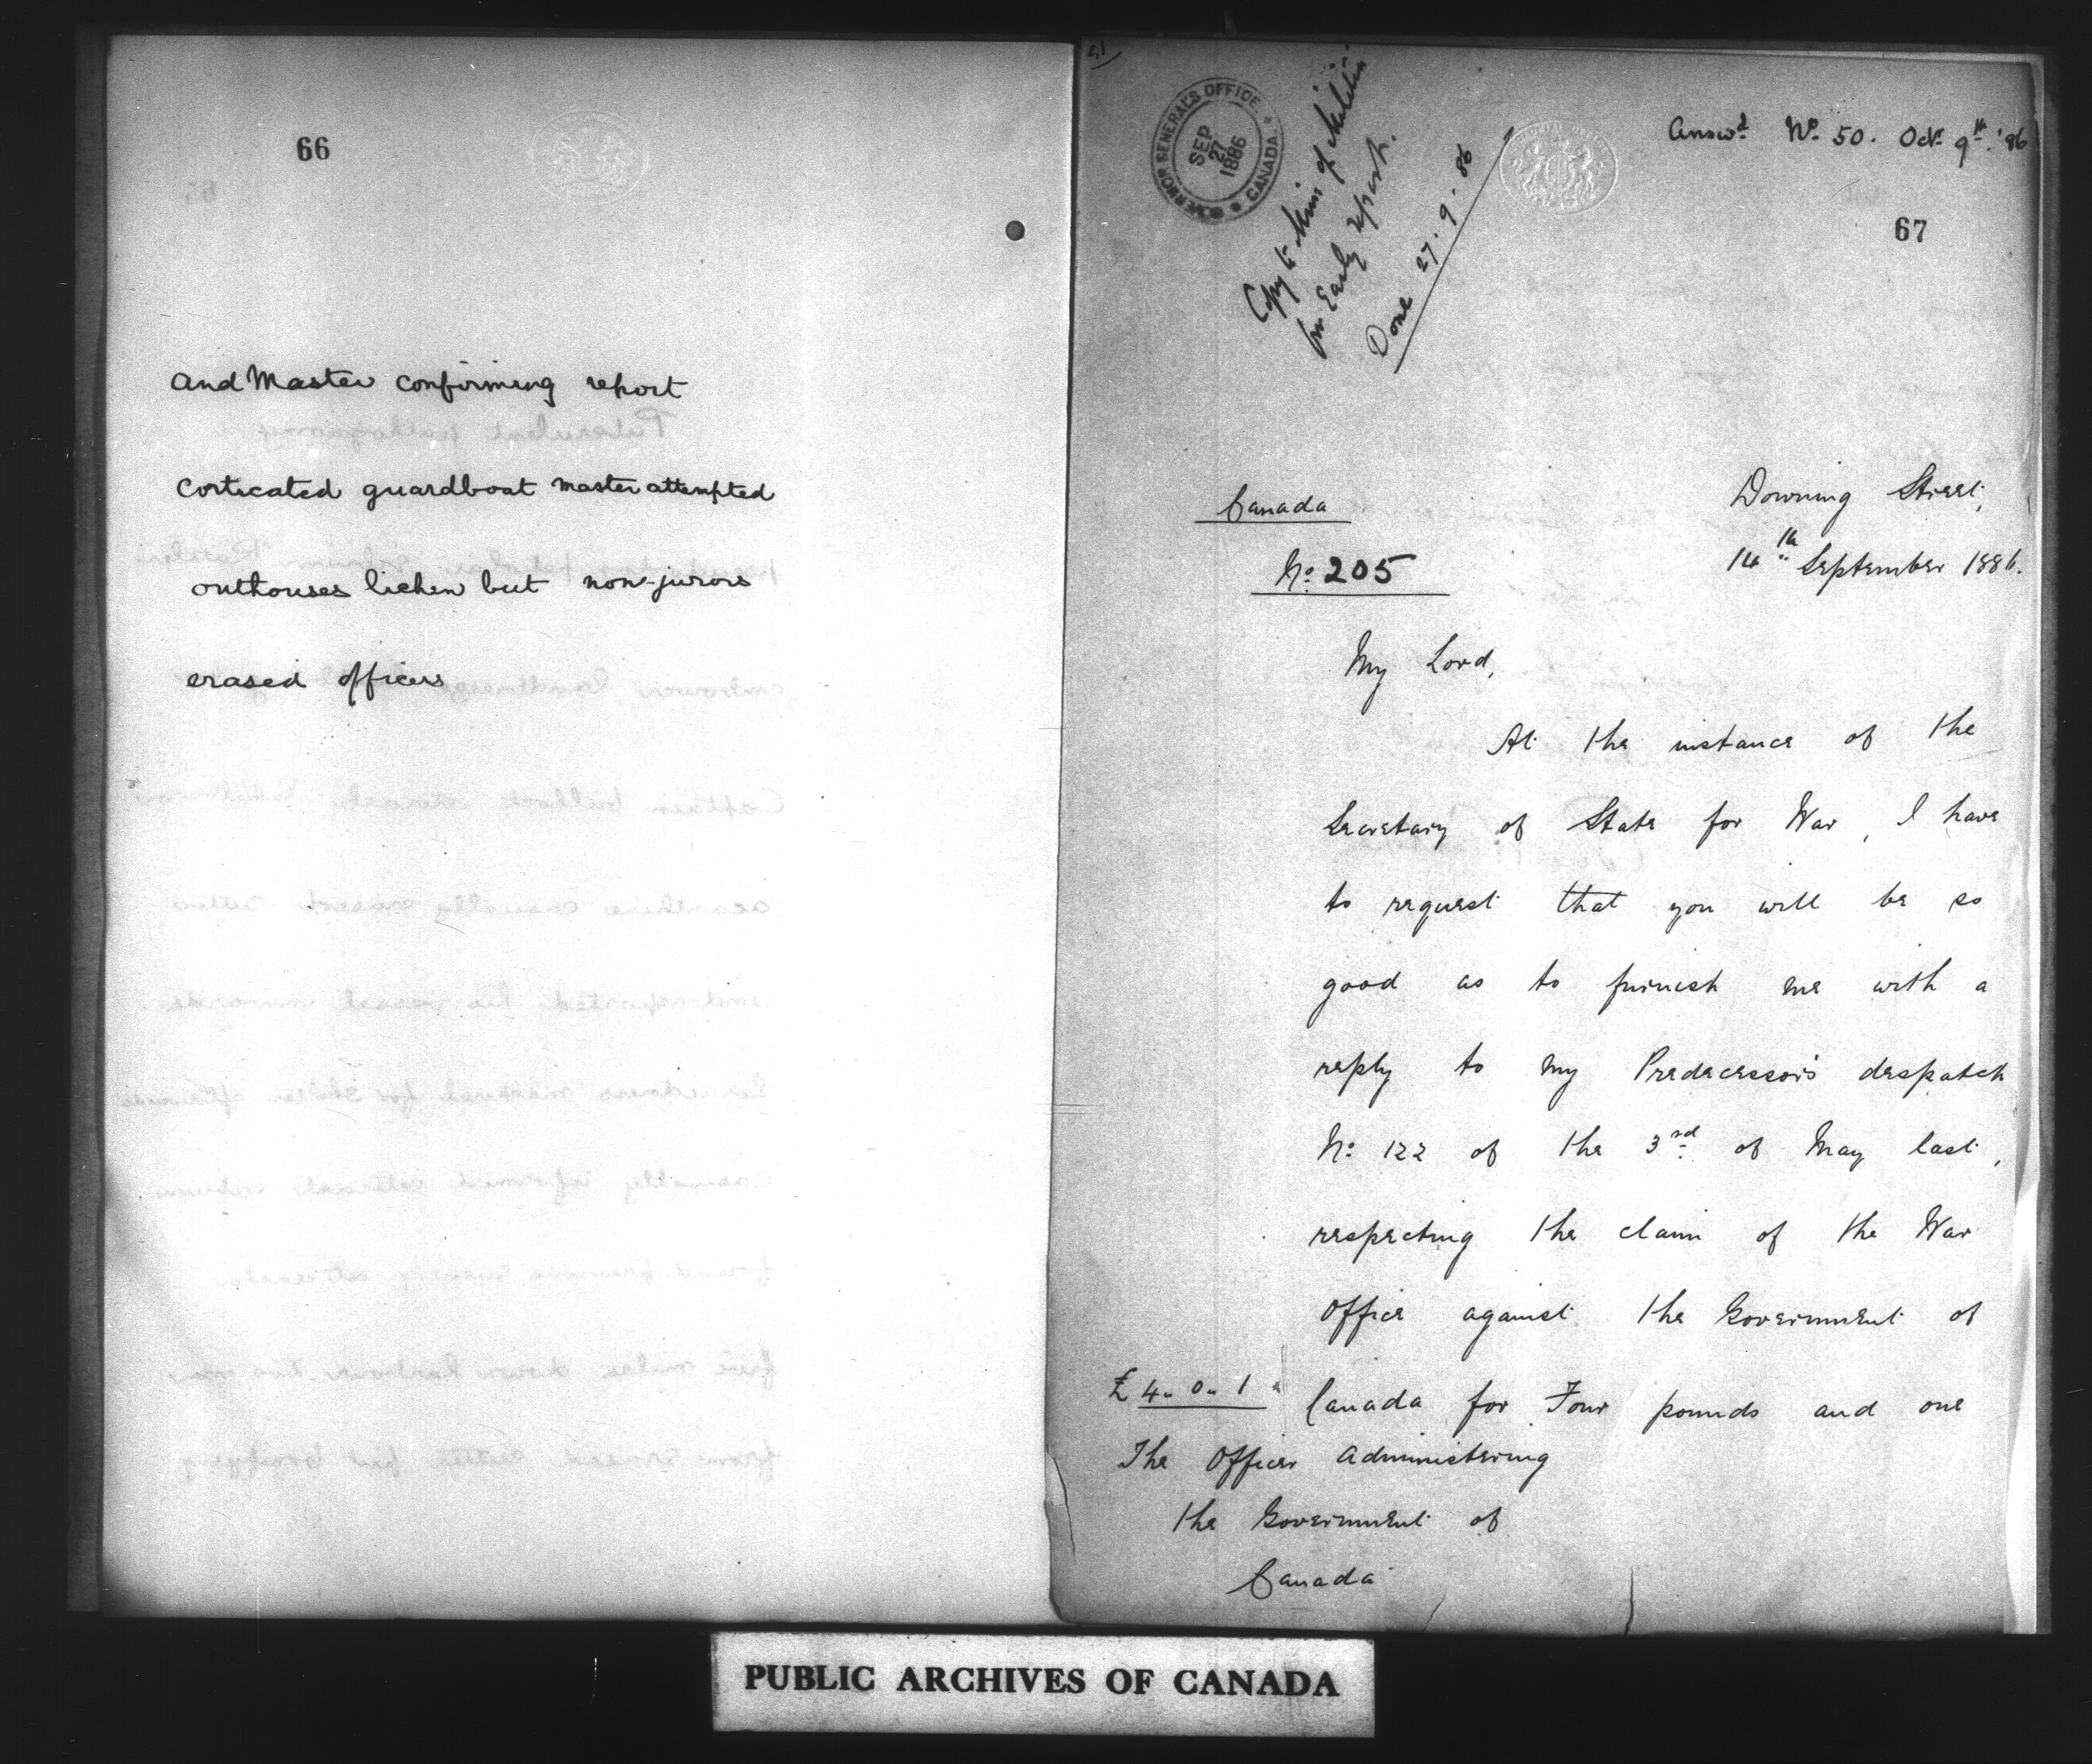 66
and Master confirming report
corticated guardboat master attempted
outhouses lichen but non-jurors
erased officers
GOVERNOR GENERAL'S OFFICE
CANADA
SEP
27
1886
Copy to Min of Militia
for Early report.
Done 27.9.86
Answd. No. 50. Oct 9th '86
67
Canada
No. 205
Downing Street,
14th September 1886.
My Lord,
At the instance of the
Secretary of State for War, I have
to request that you will be so
good as to furnish me with a
reply to my Predecessor's despatch
No. 122 of the 3rd of May last,
respecting the claim of the War
Office against the Government of
£4. 0. 1
Canada for Four pounds and one
The Officer Administering
the Government of
Canada
PUBLIC ARCHIVES OF CANADA